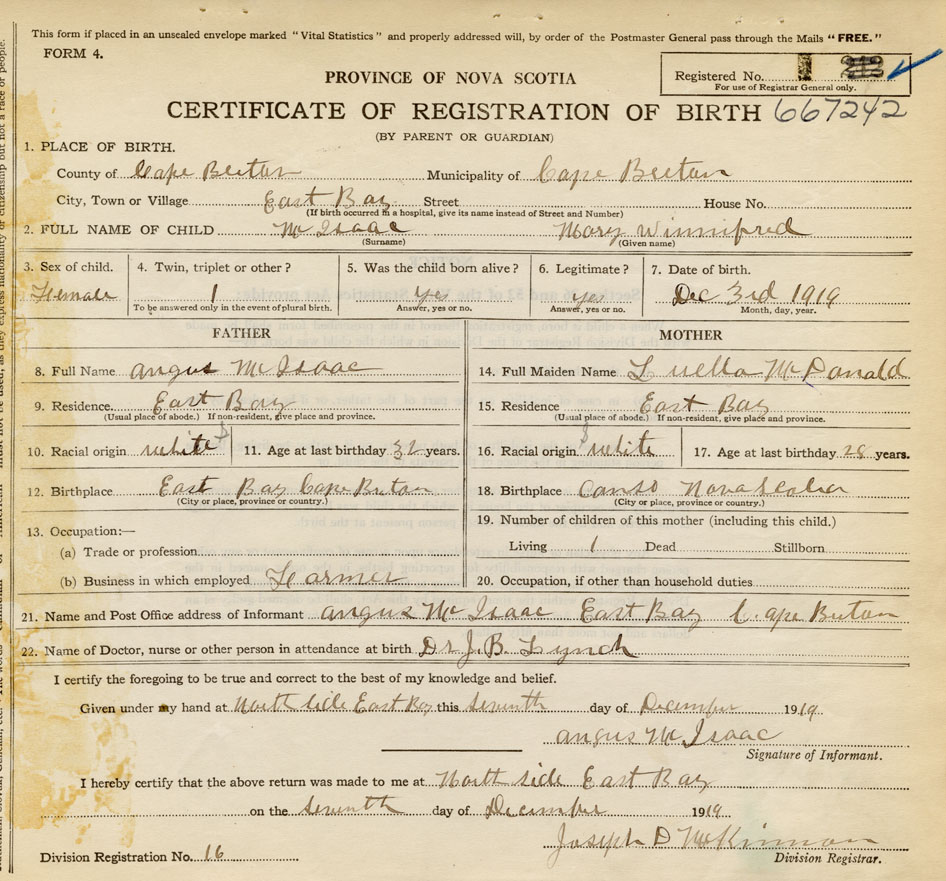 This form if placed in an unsealed envelope marked "Vital Statistics" and properly addressed will, by order of the Postmaster General pass through the Mails "FREE."
FORM 4.
PROVINCE OF NOVA SCOTIA
Registered No.
For use of Registrar General only.
CERTIFICATE OF REGISTRATION OF BIRTH 667242
(BY PARENT OR GUARDIAN)
1. PLACE OF BIRTH.
County of Cape Breton Municipality of Cape Breton
City, Town or Village East Bay Street House No.
(If birth occurred in a hospital, give its name instead of Street and Number)
2. FULL NAME OF CHILD McIsaac Mary Winnifred
(Surname) (Given name)
3. Sex of child. 4. Twin, triplet or other? 5. Was the child born alive? 6. Legitimate? 7. Date of birth.
Female 1 Yes Yes Dec 3rd 1919
To be answered only in the event of plural birth. Answer, yes or no. Answer, yes or no. Month, day, year.
FATHER MOTHER
8. Full Name Angus McIsaac 14. Full Maiden Name Luella McDonald
9. Residence. East Bay 15. Residence East Bay
(Usual place of abode.) If non-resident, give place and province. (Usual place of abode.) If non-resident, give place and province.
10. Racial origin white 11. Age at last birthday 32 years. 16. Racial origin white 17. Age at last birthday 28 years.
12. Birthplace East Bay Cape Breton 18. Birthplace Canso Nova Scotia
(City or place, province or country.) (City or place, province or country.)
13. Occupation:— 19. Number of children of this mother (including this child.)
(a) Trade or profession Living 1 Dead Stillborn
(b) Business in which employed Farmer 20. Occupation, if other than household duties
21. Name and Post Office address of Informant Angus McIsaac East Bay Cape Breton
22. Name of Doctor, nurse or other person in attendance at birth Dr J. B. Lynch
I certify the foregoing to be true and correct to the best of my knowledge and belief.
Given under my hand at North side East Bay this Seventh day of December 1919.
Angus McIsaac
Signature of Informant.
I hereby certify that the above return was made to me at North side East Bay
on the Seventh day of December 1919
Joseph D McKinnon
Division Registration No. 16 Division Registrar.